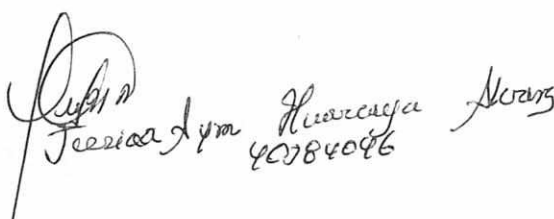 Jessica Aym Huarcaya Alvarez
40784046